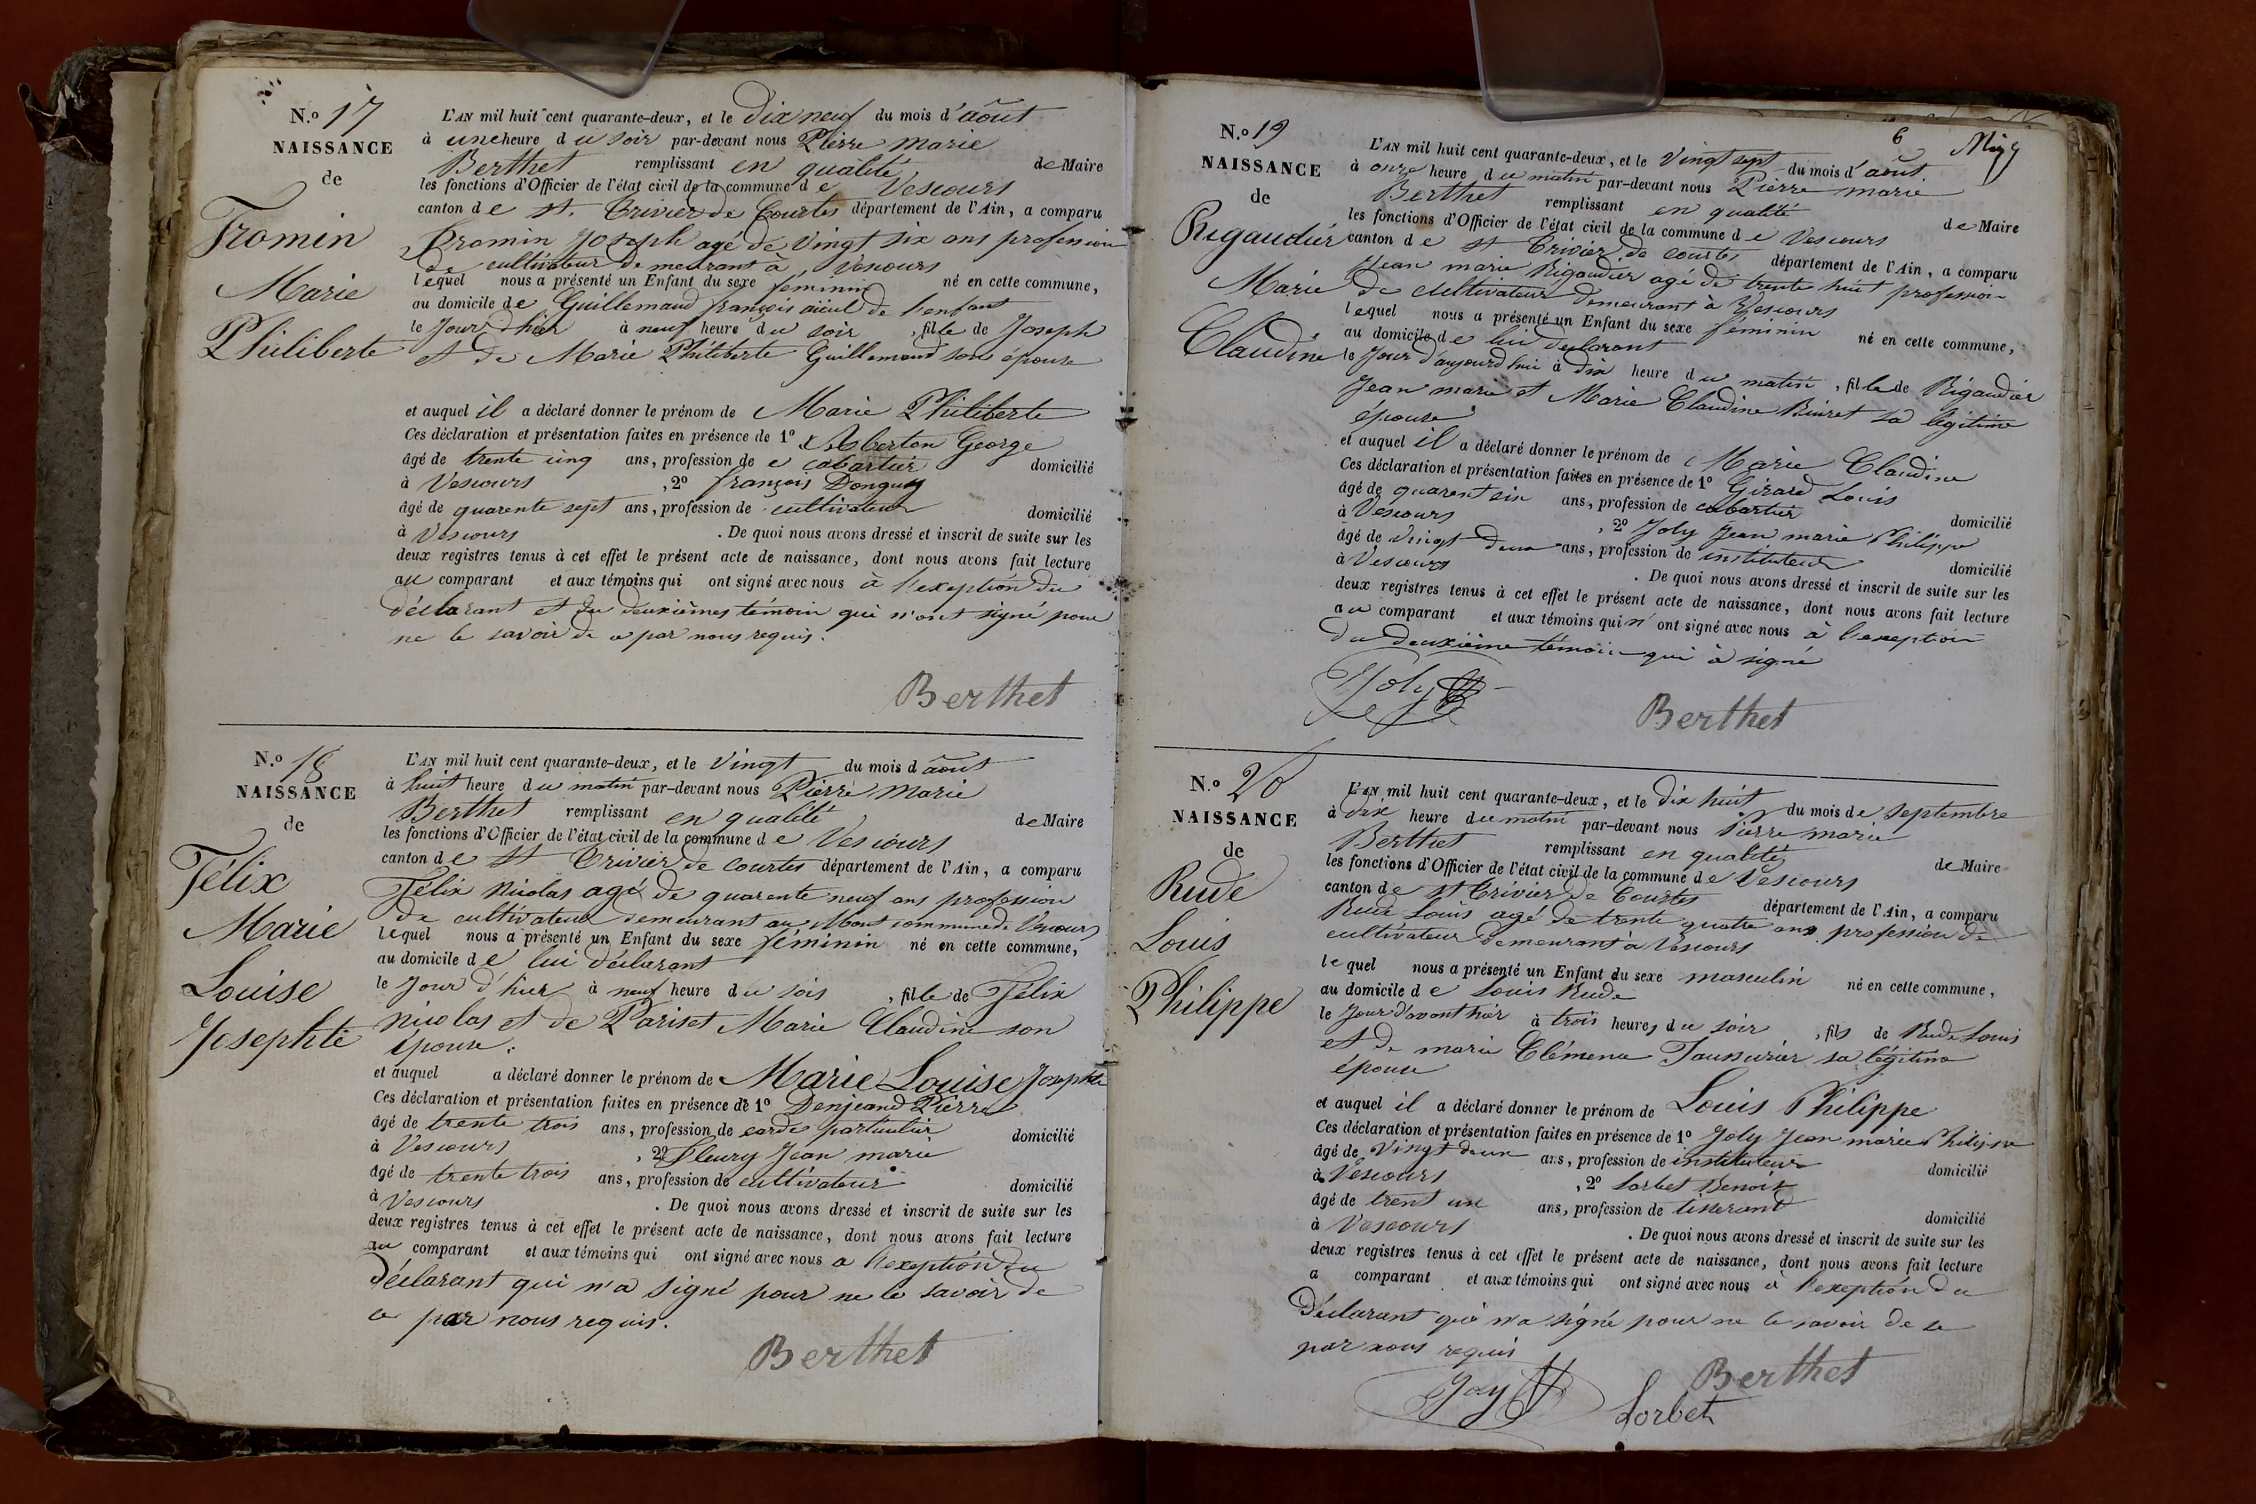 N.º 17
NAISSANCE
de
Fromin
Marie
Philiberte
L'AN mil huit cent quarante-deux, et le dix neuf du mois d'août
à une heure du soir par-devant nous Pierre marie
Berthet remplissant en qualité de Maire
les fonctions d'Officier de l'état civil de la commune de Vescours
canton de St. Trivier de Courtes département de l'Ain, a comparu
Fromin Joseph agé de vingt six ans profession
de cultivateur demeurant à Vescours
lequel nous a présenté un Enfant du sexe feminin né en cette commune,
au domicile de Guillemaud françois aïeul de l'enfant
le Jour d'hier à neuf heure du soir , fille de Joseph
et de Marie Philiberte Guillemaud son épouse
et auquel il a déclaré donner le prénom de Marie Philiberte
Ces déclaration et présentation faites en présence de 1º Asberton George
âgé de trente cinq ans, profession de cabartier domicilié
à Vescours , 2º françois Donguy
âgé de quarente sept ans, profession de cultivateur domicilié
à Vescours . De quoi nous avons dressé et inscrit de suite sur les
deux registres tenus à cet effet le présent acte de naissance, dont nous avons fait lecture
au comparant et aux témoins qui ont signé avec nous à l'exeption du
déclarant et du deuxièmes témoin qui n'ont signé pour
ne le savoir de ce par nous requis.
Berthet
N.º 18
NAISSANCE
de
Félix
Marie
Louise
Josephte
L'AN mil huit cent quarante-deux, et le vingt du mois d août
à huit heure du matin par-devant nous Pierre Marie
Berthet remplissant en qualité de Maire
les fonctions d'Officier de l'état civil de la commune de Vescours
canton de St Trivier de Courtes département de l'Ain, a comparu
Félix Nicolas agé de quarente neuf ans profession
de cultivateur demeurant au Mont commune de Vescours
lequel nous a présenté un Enfant du sexe féminin né en cette commune,
au domicile de lui déclarant
le Jour d'hier à neuf heure du soir , fille de Félix
Nicolas et de Pariset Marie Claudine son
épouse.
et auquel a déclaré donner le prénom de Marie Louise Josephte
Ces déclaration et présentation faites en présence de 1º Denjeand Pierre
âgé de trente trois ans, profession de garde particulier domicilié
à Vescours , 2º Fleury Jean marie
âgé de trente trois ans, profession de cultivateur domicilié
à Vescours . De quoi nous avons dressé et inscrit de suite sur les
deux registres tenus à cet effet le présent acte de naissance, dont nous avons fait lecture
au comparant et aux témoins qui ont signé avec nous a l'exeption du
déclarant qui n'a signé pour ne le savoir de
ce par nous requis.
Berthet
6
N.º 19
NAISSANCE
de
Rigaudier
Marie
Claudine
L'AN mil huit cent quarante-deux, et le vingt sept du mois d'août
à onze heure du matin par-devant nous Pierre marie
Berthet remplissant en qualité de Maire
les fonctions d'Officier de l'état civil de la commune de Vescours
canton de St Trivier de Courtes département de l'Ain, a comparu
Jean marie Rigaudier agé de trente huit profession
de cultivateur demeurant à Vescours
lequel nous a présenté un Enfant du sexe féminin né en cette commune,
au domicile de lui déclarant
le Jour d'aujourd'hui à dix heure du matin , fille de Rigaudier
Jean marie et Marie Claudine Buiret sa légitime
épouse
et auquel il a déclaré donner le prénom de Marie Claudine
Ces déclaration et présentation faites en présence de 1º Girard Louis
âgé de quarent six ans, profession de cabartier domicilié
à Vescours , 2º Joly Jean marie Philippe
âgé de vingt deux ans, profession de instituteur domicilié
à Vescours . De quoi nous avons dressé et inscrit de suite sur les
deux registres tenus à cet effet le présent acte de naissance, dont nous avons fait lecture
au comparant et aux témoins qui n'ont signé avec nous à l'exeption
du deuxième témoin qui à signé
Joly
Berthet
N.º 20
NAISSANCE
de
Rude
Louis
Philippe
L'AN mil huit cent quarante-deux, et le dix huit du mois de septembre
à dix heure du matin par-devant nous Pierre marie
Berthet remplissant en qualité de Maire
les fonctions d'Officier de l'état civil de la commune de Vescours
canton de St Trivier de Courtes département de l'Ain, a comparu
Rude Louis agé de trente quatre ans profession de
cultivateur demeurant à Vescours
lequel nous a présenté un Enfant du sexe masculin né en cette commune,
au domicile de Louis Rude
le Jour d'avant hier à trois heures du soir , fils de Rude Louis
et de marie Clémence Taussurier sa légitime
épouse
et auquel il a déclaré donner le prénom de Louis Philippe
Ces déclaration et présentation faites en présence de 1º Joly Jean marie Philippe
âgé de vingt deux ans, profession de instituteur domicilié
à Vescours , 2º Lorbet Benoit
âgé de trent un ans, profession de tisserand domicilié
à Vescours . De quoi nous avons dressé et inscrit de suite sur les
deux registres tenus à cet effet le présent acte de naissance, dont nous avons fait lecture
a comparant et aux témoins qui ont signé avec nous à l'exeption du
déclarant qui n'a signé pour ne le savoir de ce
par nous requis
Joly
Berthet
Lorbet